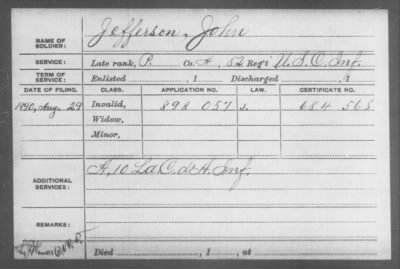 NAME OF SOLDIER: Jefferson, John
SERVICE: Late rank, P. Co. A, 52 Reg't U.S.C. Inf.
TERM OF SERVICE: Enlisted , 1 Discharged , 1
DATE OF FILING. CLASS. APPLICATION NO. LAW. CERTIFICATE NO.
1890, Aug. 29 Invalid, 898 057 J. 684 568
Widow,
Minor,
ADDITIONAL SERVICES: A, 10 La C. d'A. Inf.
REMARKS:
Died , 1 , at